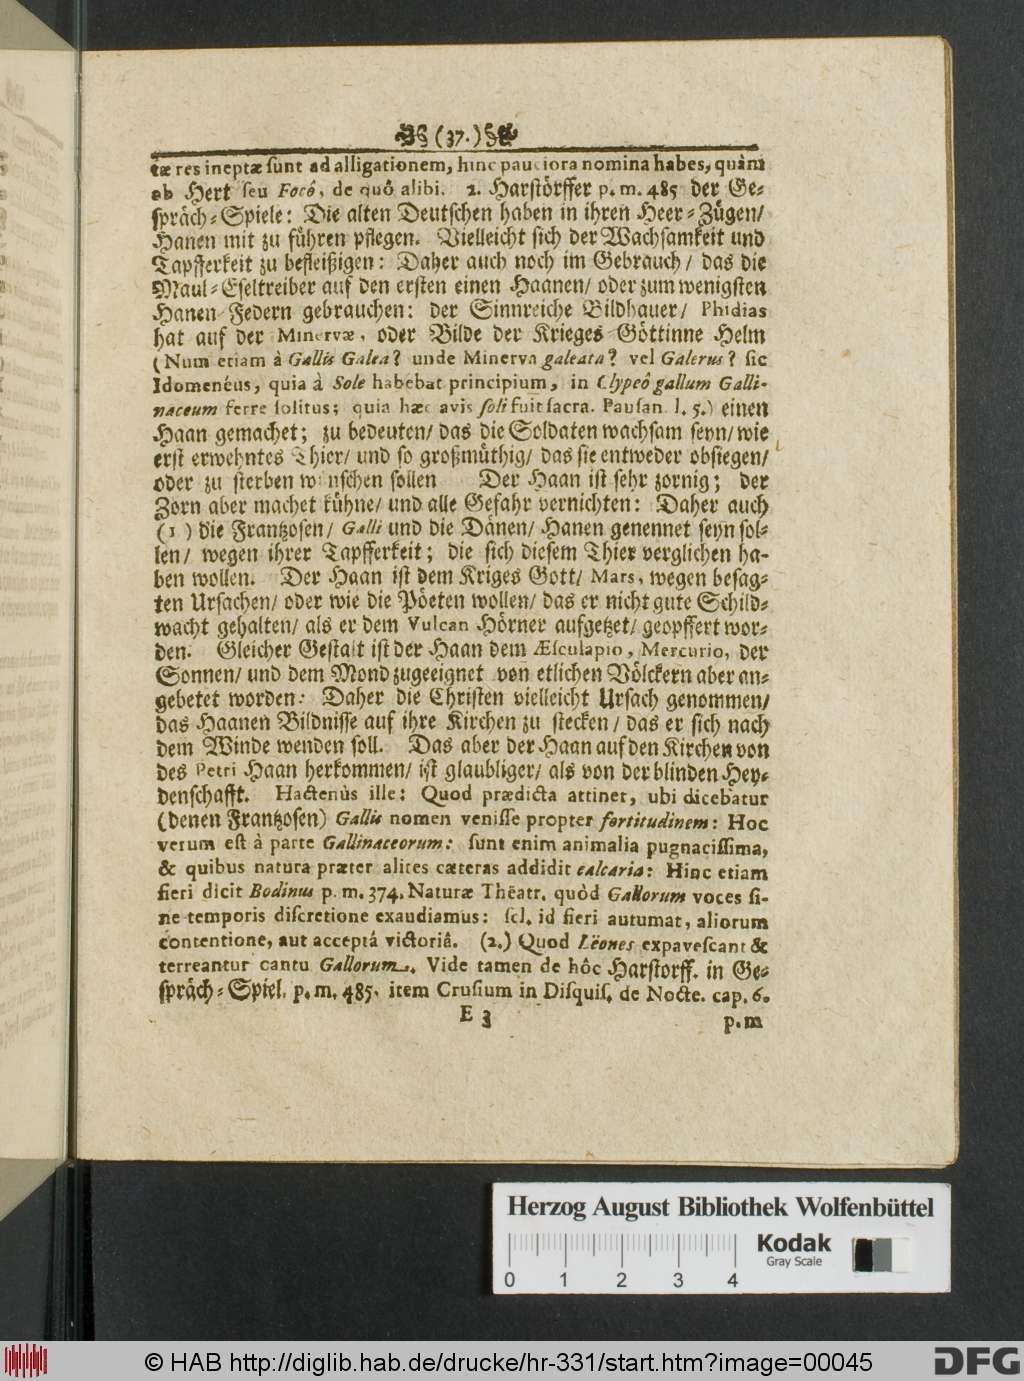 (37.)
tæ res ineptæ sunt ad alligationem, hinc pauciora nomina habes, quàm
ab Hert seu Focô, de quô alibi. 2. Harstörffer p. m. 485 der Ge-
spräch-Spiele: Die alten Deutschen haben in ihren Heer-Zügen/
Hanen mit zu führen pflegen. Vielleicht sich der Wachsamkeit und
Tapfferkeit zu befleißigen: Daher auch noch im Gebrauch/ das die
Maul-Eseltreiber auf den ersten einen Haanen/ oder zum wenigsten
Hanen-Federn gebrauchen: der Sinnreiche Bildhauer/ Phidias
hat auf der Minervæ, oder Bilde der Krieges-Göttinne Helm
(Num etiam à Gallis Galea? unde Minerva galeata? vel Galerus? sic
Idomenéus, quia à Sole habebat principium, in Clypeô gallum Galli-
naceum ferre solitus; quia hæc avis soli fuit sacra. Pausan. l. 5.) einen
Haan gemachet; zu bedeuten/ das die Soldaten wachsam seyn/ wie
erst erwehntes Thier/ und so großmüthig/ das sie entweder obsiegen/
oder zu sterben wünschen sollen Der Haan ist sehr zornig; der
Zorn aber machet kühne/ und alle Gefahr vernichten: Daher auch
(1) die Frantzosen/ Galli und die Dänen/ Hanen genennet seyn sol-
len/ wegen ihrer Tapfferkeit; die sich diesem Thier verglichen ha-
ben wollen. Der Haan ist dem Kriges Gott/ Mars, wegen besag-
ten Ursachen/ oder wie die Pöeten wollen/ das er nicht gute Schild-
wacht gehalten/ als er dem Vulcan Hörner aufgetzet/ geopffert wor-
den. Gleicher Gestalt ist der Haan dem Æsculapio, Mercurio, der
Sonnen/ und dem Mond zugeeignet von etlichen Völckern aber an-
gebetet worden: Daher die Christen vielleicht Ursach genommen/
das Haanen Bildnisse auf ihre Kirchen zu stecken/ das er sich nach
dem Winde wenden soll. Das aber der Haan auf den Kirchen von
des Petri Haan herkommen/ ist glaubliger/ als von der blinden Hey-
denschafft. Hactenùs ille: Quod prædicta attinet, ubi dicebatur
(denen Frantzosen) Gallis nomen venisse propter fortitudinem: Hoc
verum est à parte Gallinaceorum: sunt enim animalia pugnacissima,
& quibus natura præter alites cæteras addidit calcaria: Hinc etiam
fieri dicit Bodinus p. m. 374. Naturæ Thëatr. quòd Gallorum voces si-
ne temporis discretione exaudiamus: scl. id fieri autumat, aliorum
contentione, aut acceptâ victoriâ. (2.) Quod Lëones expavescant &
terreantur cantu Gallorum. Vide tamen de hôc Harstorff. in Ge-
spräch-Spiel. p. m. 485. item Crusium in Disquis. de Nocte. cap. 6.
E 3 p. m
Herzog August Bibliothek Wolfenbüttel
Kodak
Gray Scale
0 1 2 3 4
© HAB http://diglib.hab.de/drucke/hr-331/start.htm?image=00045
DFG